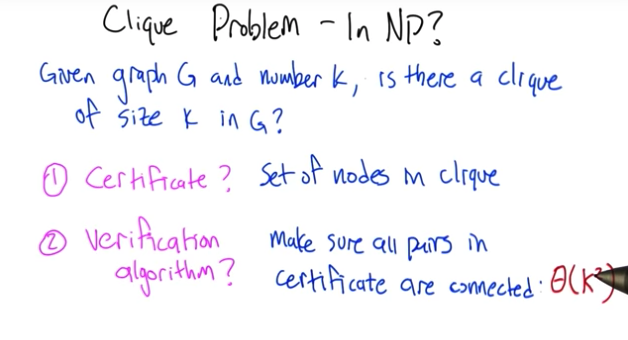 Clique Problem - In NP?
Given graph G and number K, is there a clique
of size K in G?
① Certificate? Set of nodes in clique
② Verification make sure all pairs in
algorithm? certificate are connected: Θ(K²)